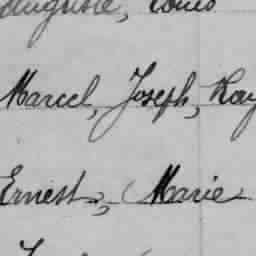 Auguste, Louis
Marcel, Joseph, Ray
Ernest, Marie